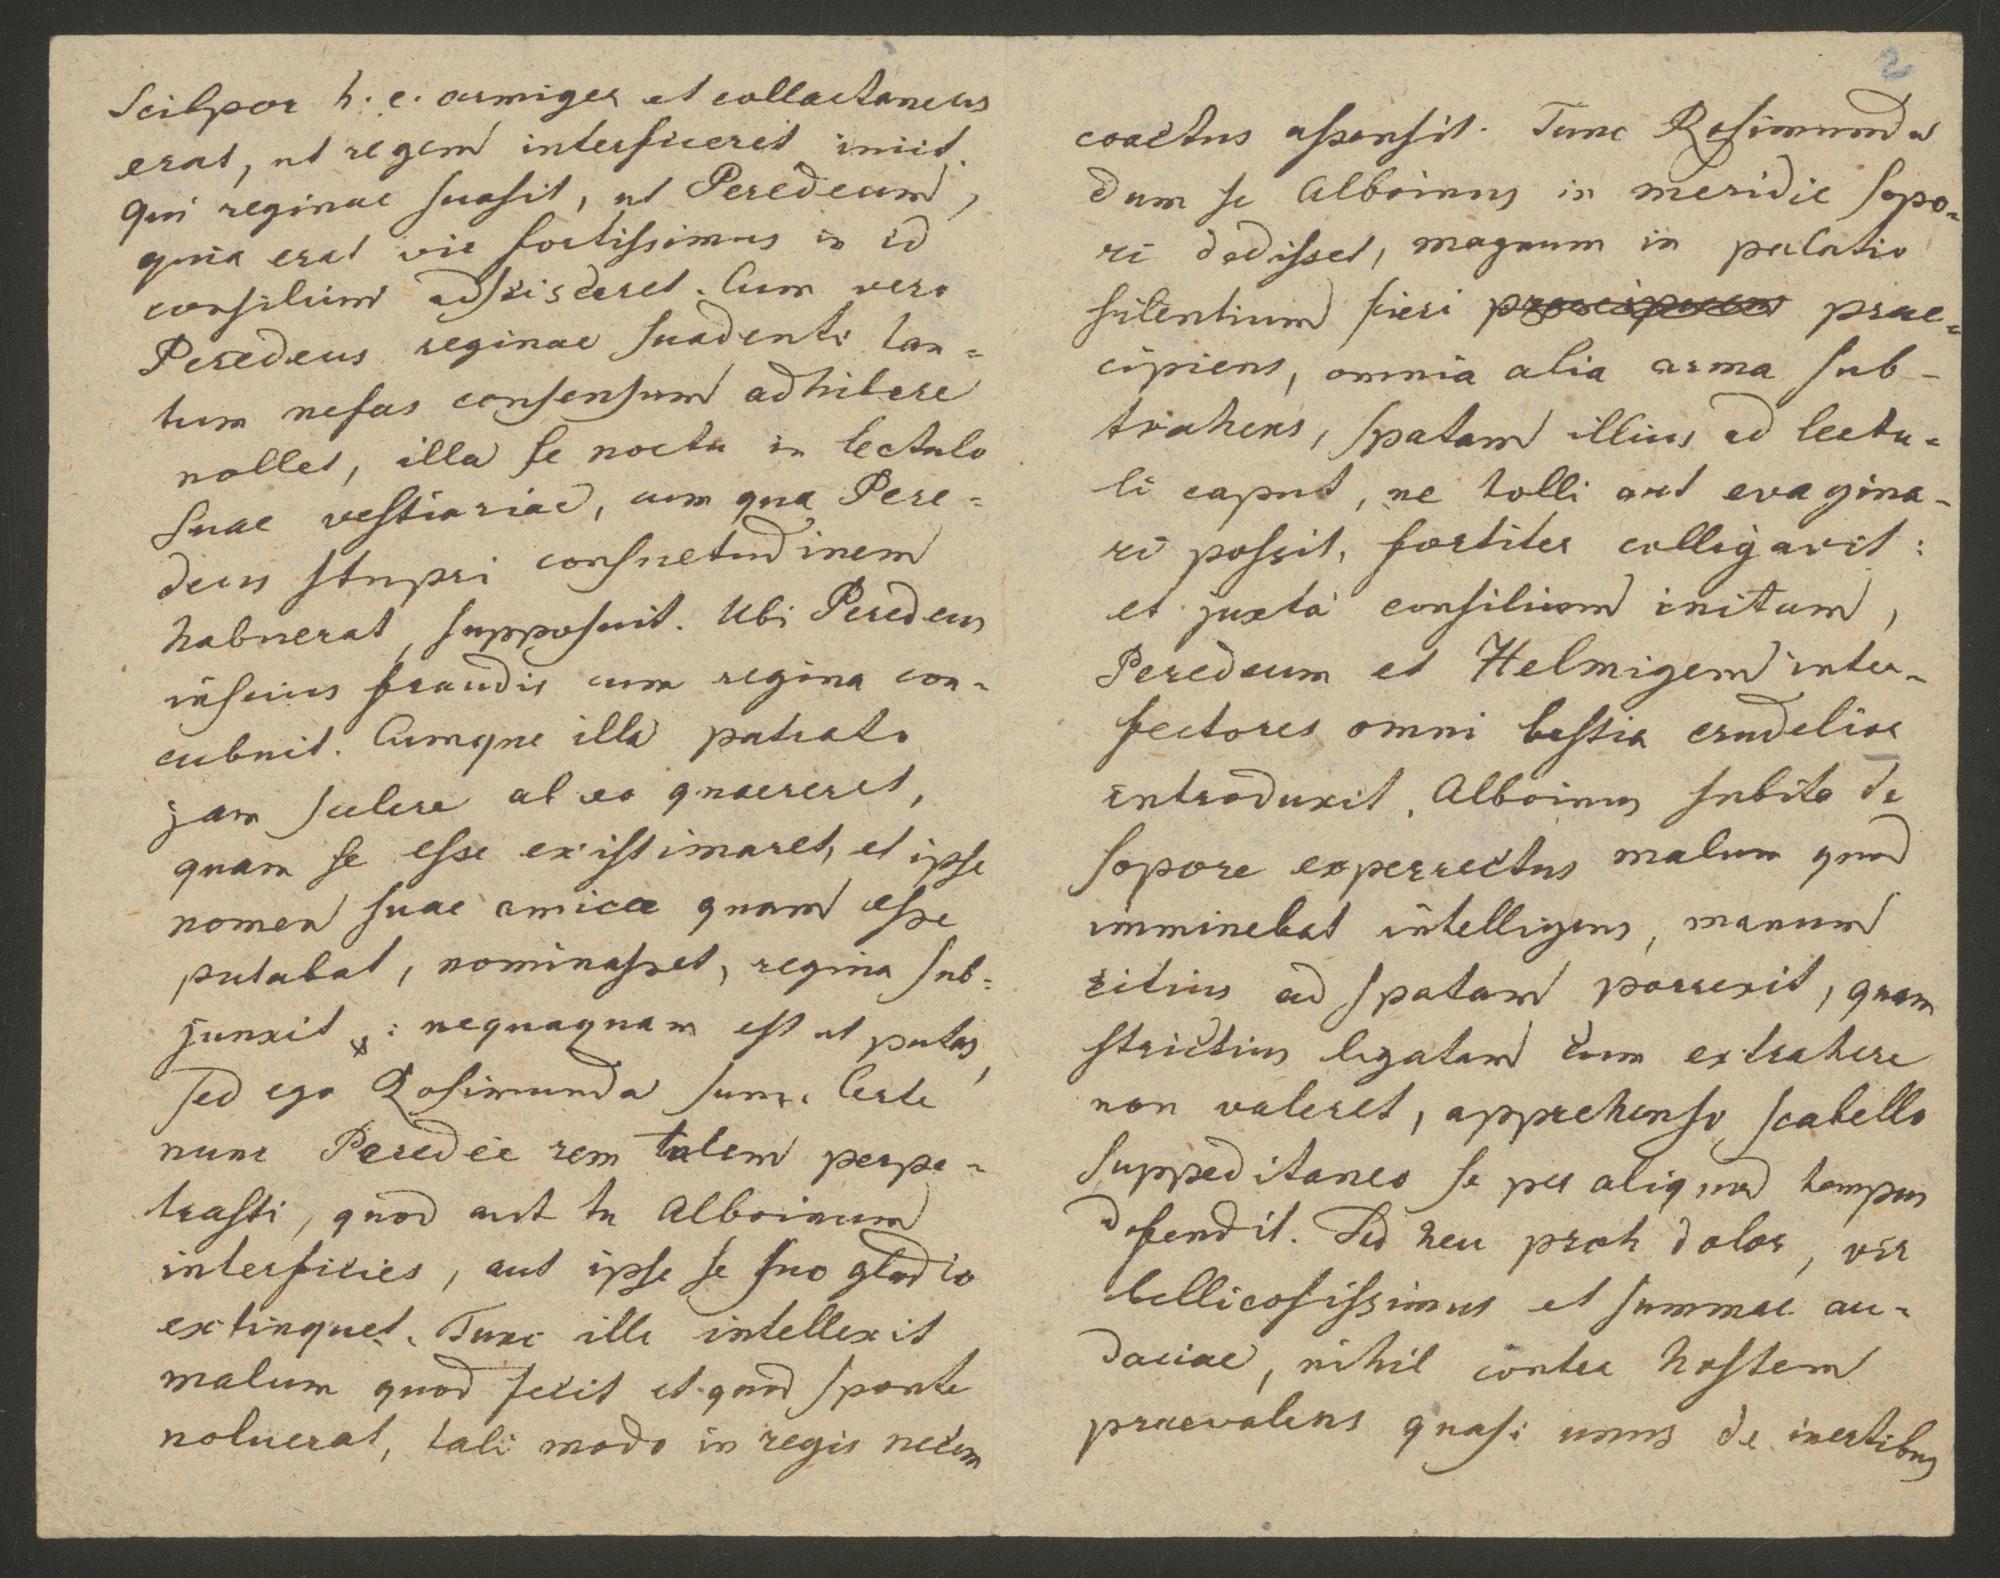 Scilpor h. e. armiger et collactaneus
erat, ut regem interficeret iniit.
Qui reginae suasit, ut Peredeum,
quia erat vir fortissimus in id
consilium adscisceret. Cum vero
Peredeus reginae suadenti tan=
tum nefas consensum adhibere
nollet, illa se noctu in lectulo
suae vestiariae, cum qua Pere=
deus stupri consuetudinem
habuerat, supposuit. Ubi Peredeus
inscius fraudis cum regina con=
cubuit. Cumque illa patrato
jam scelere ab eo quaereret,
quam se esse existimaret, et ipse
nomen suae amicae quam esse
putabat, nominasset, regina sub=
junxit : nequaquam est ut putas,
sed ego Rosimunda sum. Certe
nunc Peredee rem talem perpe=
trasti, quod aut tu Alboinum
interficies, aut ipse se suo gladio
extinguet. Tunc ille intellexit
malum quod fecit et quod sponte
noluerat, tali modo in regis necem
2
coactus assensit. Tunc Rosimunda
dum se Alboinus in meridie sopo=
ri dedisset, magnum in palatio
silentium fieri prae=
cipiens, omnia alia arma sub-
trahens, spatam illius ad lectu=
li caput, ne tolli aut evagina-
ri possit, fortiter colligavit:
et juxta consilium initum,
Peredeum et Helmigem inter-
fectores omni bestia crudelior
introduxit. Alboinus subito de
sopore experrectus malum quod
imminebat intelligens, manum
citius ad spatam porrexit, quam
strictius ligatam cum extrahere
non valeret, apprehenso scabello
suppeditaneo se per aliquod tempus
defendit. Sed heu proh dolor, vir
bellicosissimus et summae au=
daciae, nihil contra hostem
praevalens quasi unus de inertibus